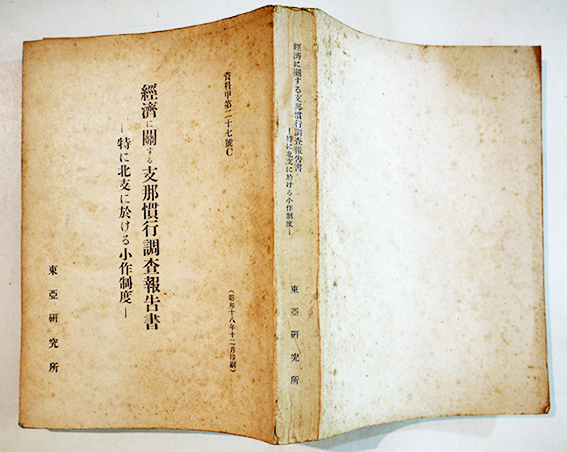 資料甲第二十七號C
經濟に關する支那慣行調査報告書
―特に北支に於ける小作制度―
(昭和十八年十二月印刷)
東亞研究所
經濟に關する支那慣行調査報告書
―特に北支に於ける小作制度―
東亞研究所